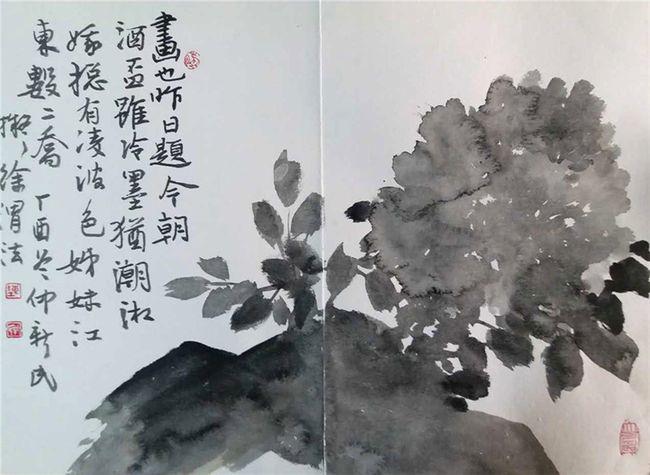 畫也昨日題今朝
酒盃雖冷墨猶潮湘
娥總有凌波色姊妹江
東數二喬 丁酉冬仲新民
擬徐渭法